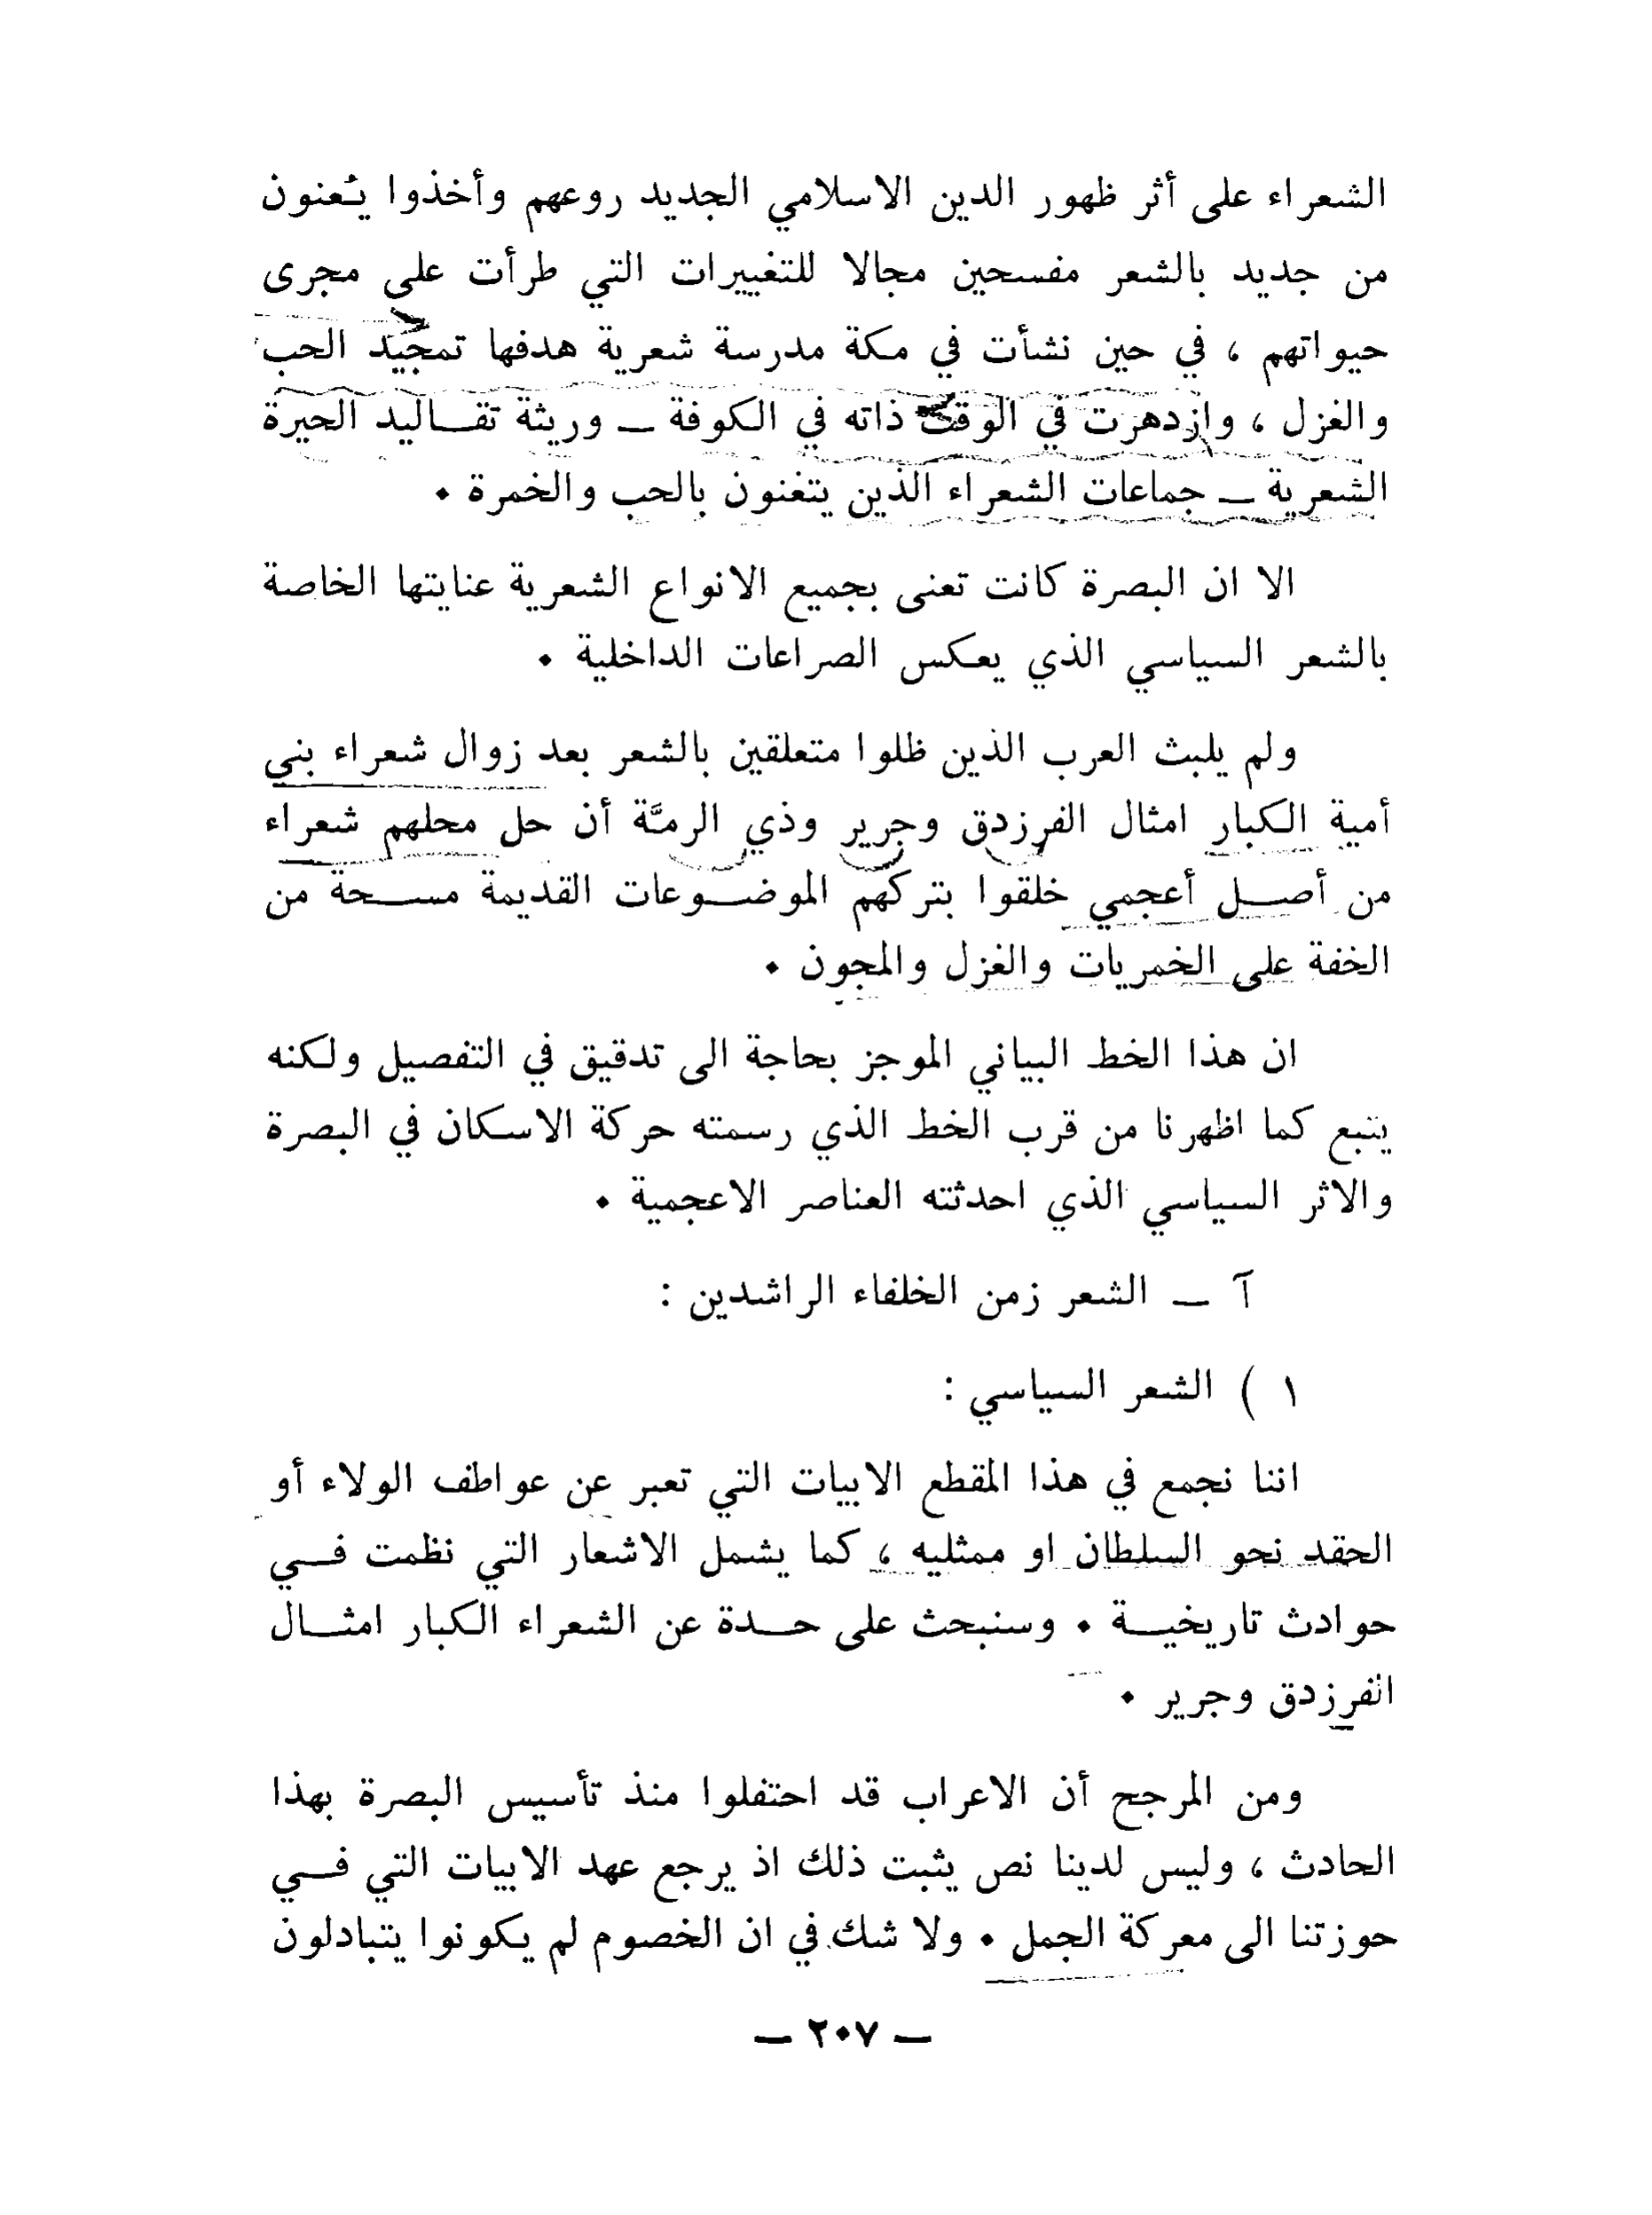 الشعراء على أثر ظهور الدين الاسلامي الجديد روعهم وأخذوا يُعنون
من جديد بالشعر مفسحين مجالا للتغييرات التي طرأت على مجرى
حيواتهم ، في حين نشأت في مكة مدرسة شعرية هدفها تمجيد الحب
والغزل ، وازدهرت في الوقت ذاته في الكوفة ـ وريثة تقـاليد الحيرة
الشعرية ـ جماعات الشعراء الذين يتغنون بالحب والخمرة .
الا ان البصرة كانت تعنى بجميع الانواع الشعرية عنايتها الخاصة
بالشعر السياسي الذي يعكس الصراعات الداخلية .
ولم يلبث العرب الذين ظلوا متعلقين بالشعر بعد زوال شعراء بني
أمية الكبار امثال الفرزدق وجرير وذي الرمَّة أن حل محلهم شعراء
من أصـل أعجمي خلقوا بتركهم الموضـوعات القديمة مسـحة من
الخفة على الخمريات والغزل والمجون .
ان هذا الخط البياني الموجز بحاجة الى تدقيق في التفصيل ولكنه
يتبع كما اظهرنا من قرب الخط الذي رسمته حركة الاسكان في البصرة
والاثر السياسي الذي احدثته العناصر الاعجمية .
آ ـ الشعر زمن الخلفاء الراشدين :
١ ) الشعر السياسي :
اننا نجمع في هذا المقطع الابيات التي تعبر عن عواطف الولاء أو
الحقد نحو السلطان او ممثليه ، كما يشمل الاشعار التي نظمت فـي
حوادث تاريخيـة . وسنبحث على حـدة عن الشعراء الكبار امثـال
الفرزدق وجرير .
ومن المرجح أن الاعراب قد احتفلوا منذ تأسيس البصرة بهذا
الحادث ، وليس لدينا نص يثبت ذلك اذ يرجع عهد الابيات التي فـي
حوزتنا الى معركة الجمل . ولا شك في ان الخصوم لم يكونوا يتبادلون
ـ ٢٠٧ ـ